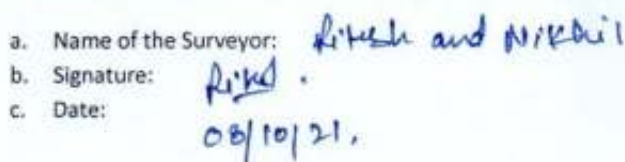 a. Name of the Surveyor: Ritesh and Nikhil
b. Signature:
c. Date: 08/10/21.